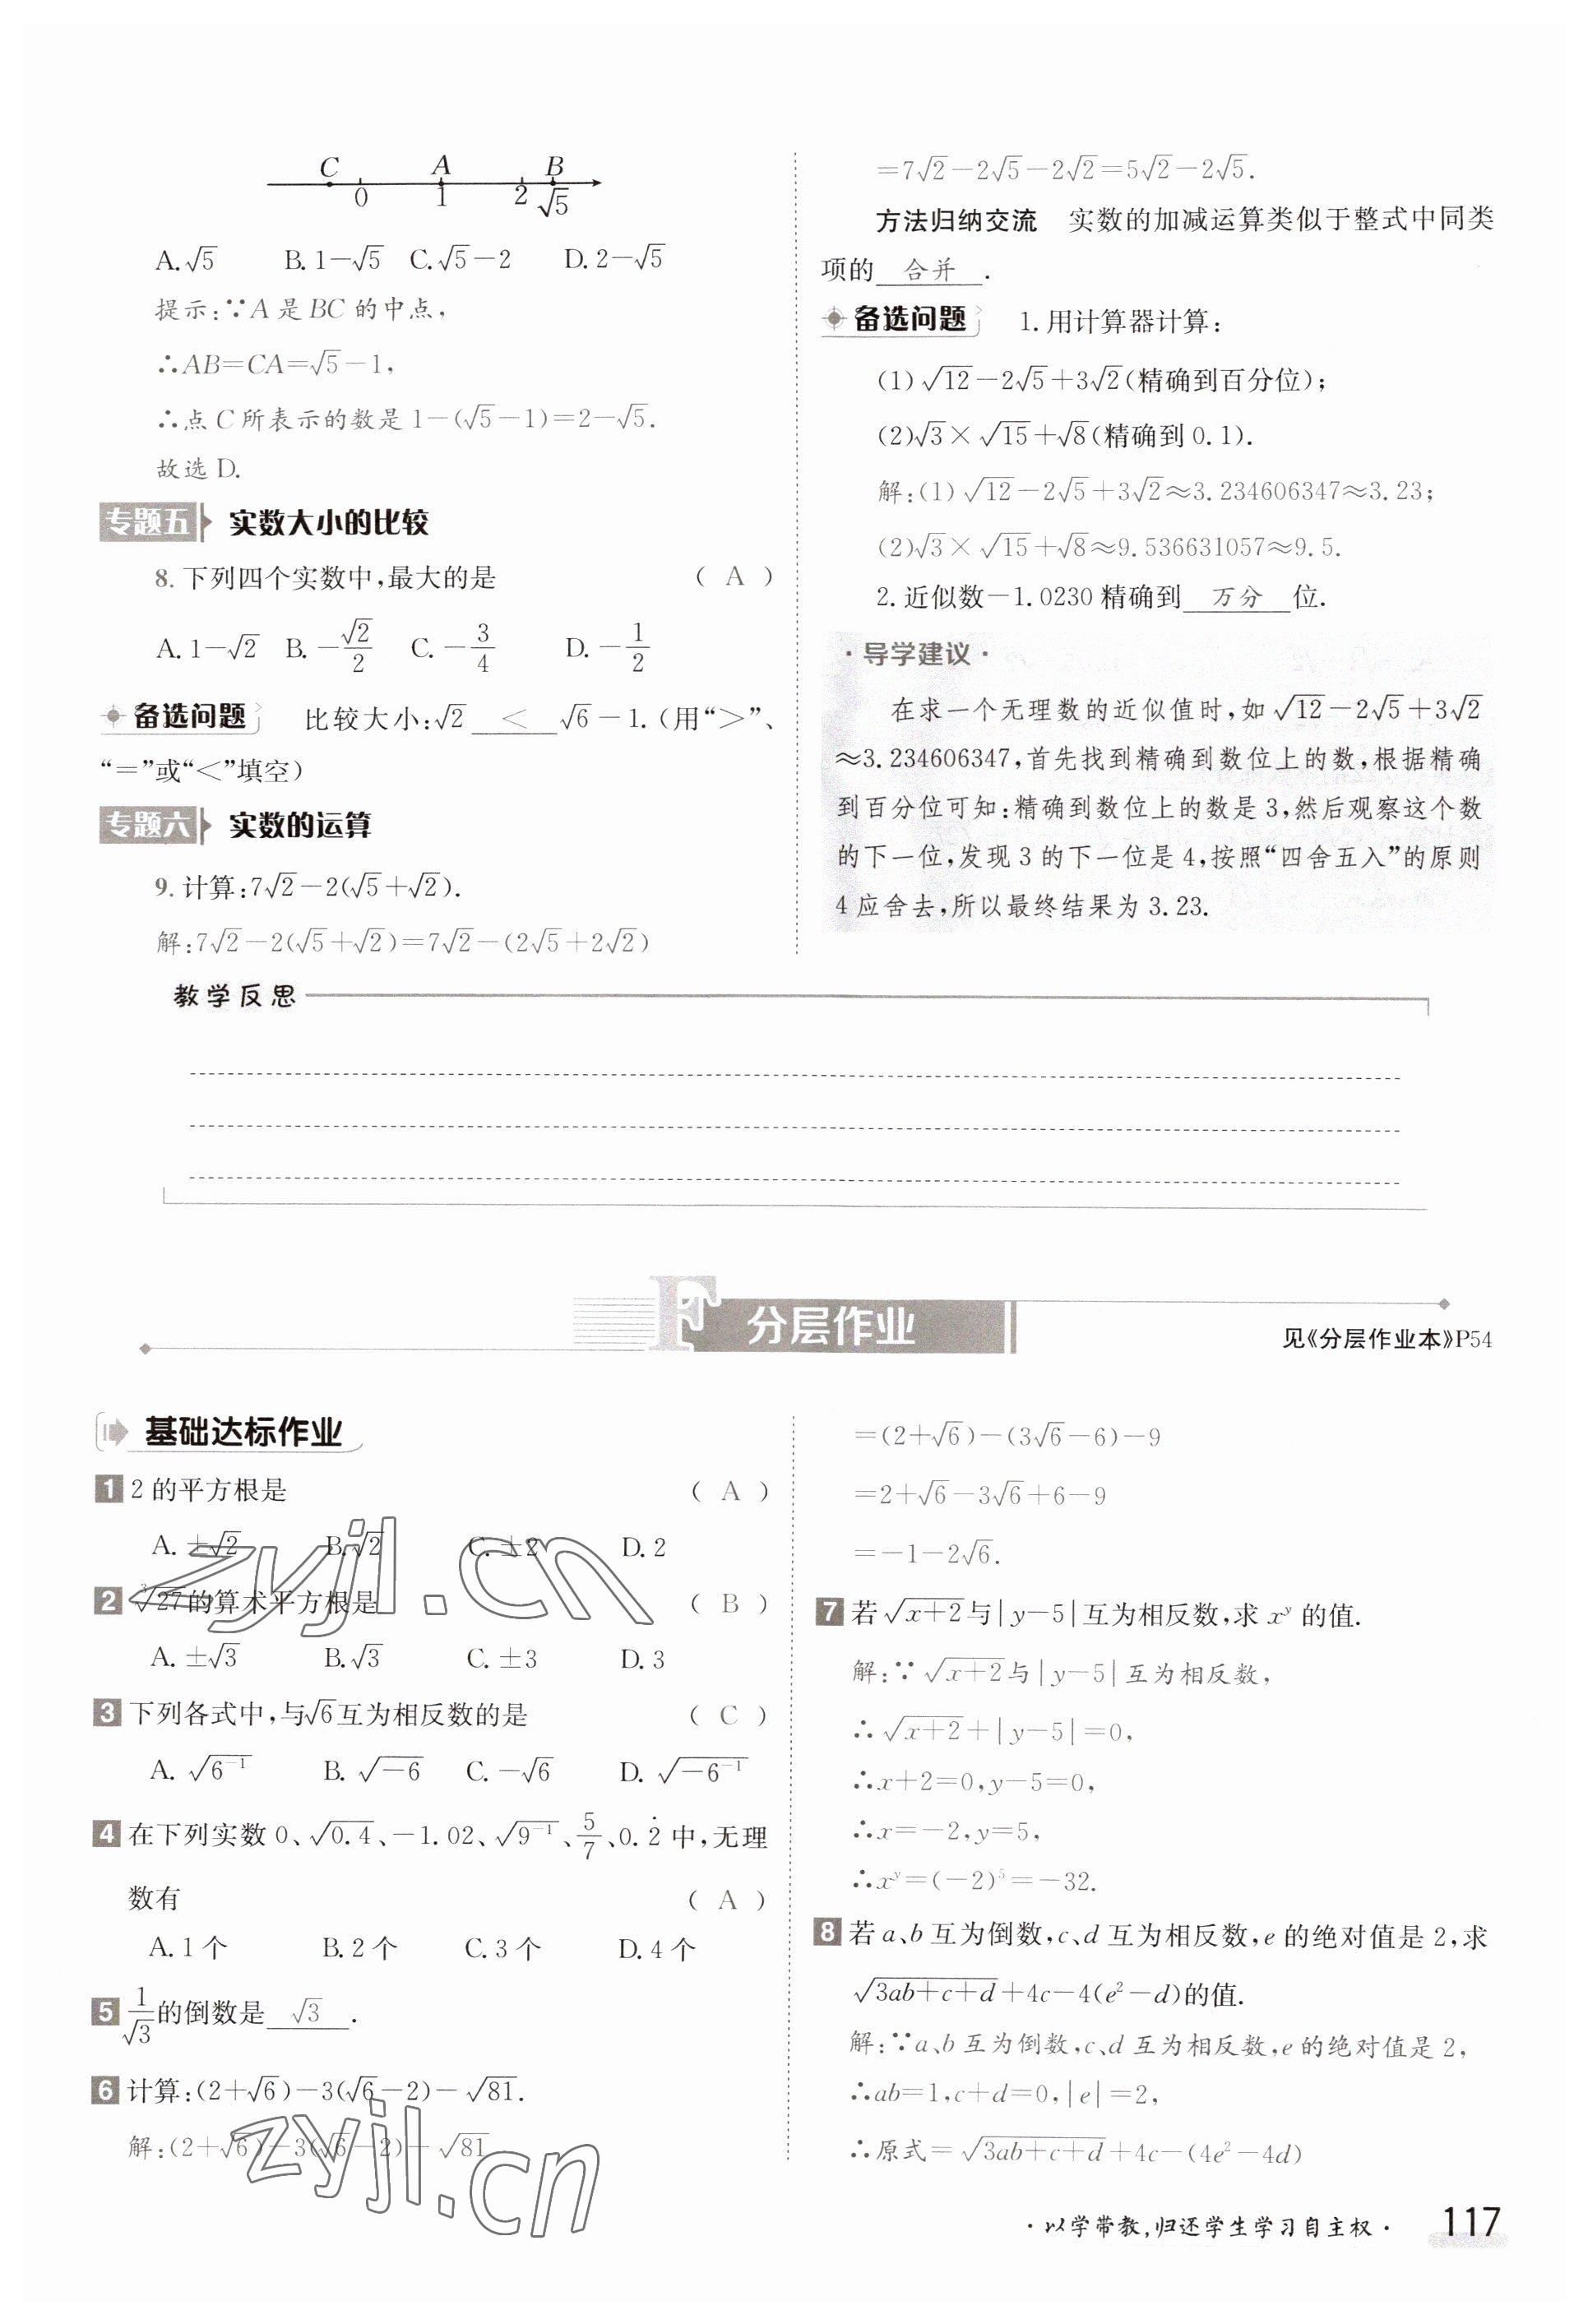 C A B
0 1 2 √5
A.√5 B.1－√5 C.√5－2 D.2－√5
提示:∵A是BC的中点,
∴AB=CA=√5－1,
∴点C所表示的数是1－(√5－1)=2－√5.
故选D.
专题五 实数大小的比较
8.下列四个实数中,最大的是 ( A )
A.1－√2 B.－√2/2 C.－3/4 D.－1/2
备选问题 比较大小:√2 ＜ √6－1.(用“＞”、
“=”或“＜”填空)
专题六 实数的运算
9.计算:7√2－2(√5+√2).
解:7√2－2(√5+√2)=7√2－(2√5+2√2)
=7√2－2√5－2√2=5√2－2√5.
方法归纳交流 实数的加减运算类似于整式中同类
项的 合并 .
备选问题 1.用计算器计算:
(1)√12－2√5+3√2(精确到百分位);
(2)√3×√15+√8(精确到0.1).
解:(1)√12－2√5+3√2≈3.234606347≈3.23;
(2)√3×√15+√8≈9.536631057≈9.5.
2.近似数－1.0230精确到 万分 位.
·导学建议·
在求一个无理数的近似值时,如√12－2√5+3√2
≈3.234606347,首先找到精确到数位上的数,根据精确
到百分位可知:精确到数位上的数是3,然后观察这个数
的下一位,发现3的下一位是4,按照“四舍五入”的原则
4应舍去,所以最终结果为3.23.
教学反思
F 分层作业
见《分层作业本》P54
基础达标作业
1 2的平方根是 ( A )
A.±√2 B.√2 C.±2 D.2
2 ³√27的算术平方根是 ( B )
A.±√3 B.√3 C.±3 D.3
3 下列各式中,与√6互为相反数的是 ( C )
A.√6⁻¹ B.√－6 C.－√6 D.√－6⁻¹
4 在下列实数0、√0.4、－1.02、√9⁻¹、5/7、0.2̇中,无理
数有 ( A )
A.1个 B.2个 C.3个 D.4个
5 1/√3的倒数是 √3 .
6 计算:(2+√6)－3(√6－2)－√81.
解:(2+√6)－3(√6－2)－√81
=(2+√6)－(3√6－6)－9
=2+√6－3√6+6－9
=－1－2√6.
7 若√x+2与|y－5|互为相反数,求xʸ的值.
解:∵√x+2与|y－5|互为相反数,
∴√x+2+|y－5|=0,
∴x+2=0,y－5=0,
∴x=－2,y=5,
∴xʸ=(－2)⁵=－32.
8 若a、b互为倒数,c、d互为相反数,e的绝对值是2,求
√3ab+c+d+4c－4(e²－d)的值.
解:∵a、b互为倒数,c、d互为相反数,e的绝对值是2,
∴ab=1,c+d=0,|e|=2,
∴原式=√3ab+c+d+4c－(4e²－4d)
zyjl.cn
zyjl.cn
·以学带教,归还学生学习自主权· 117